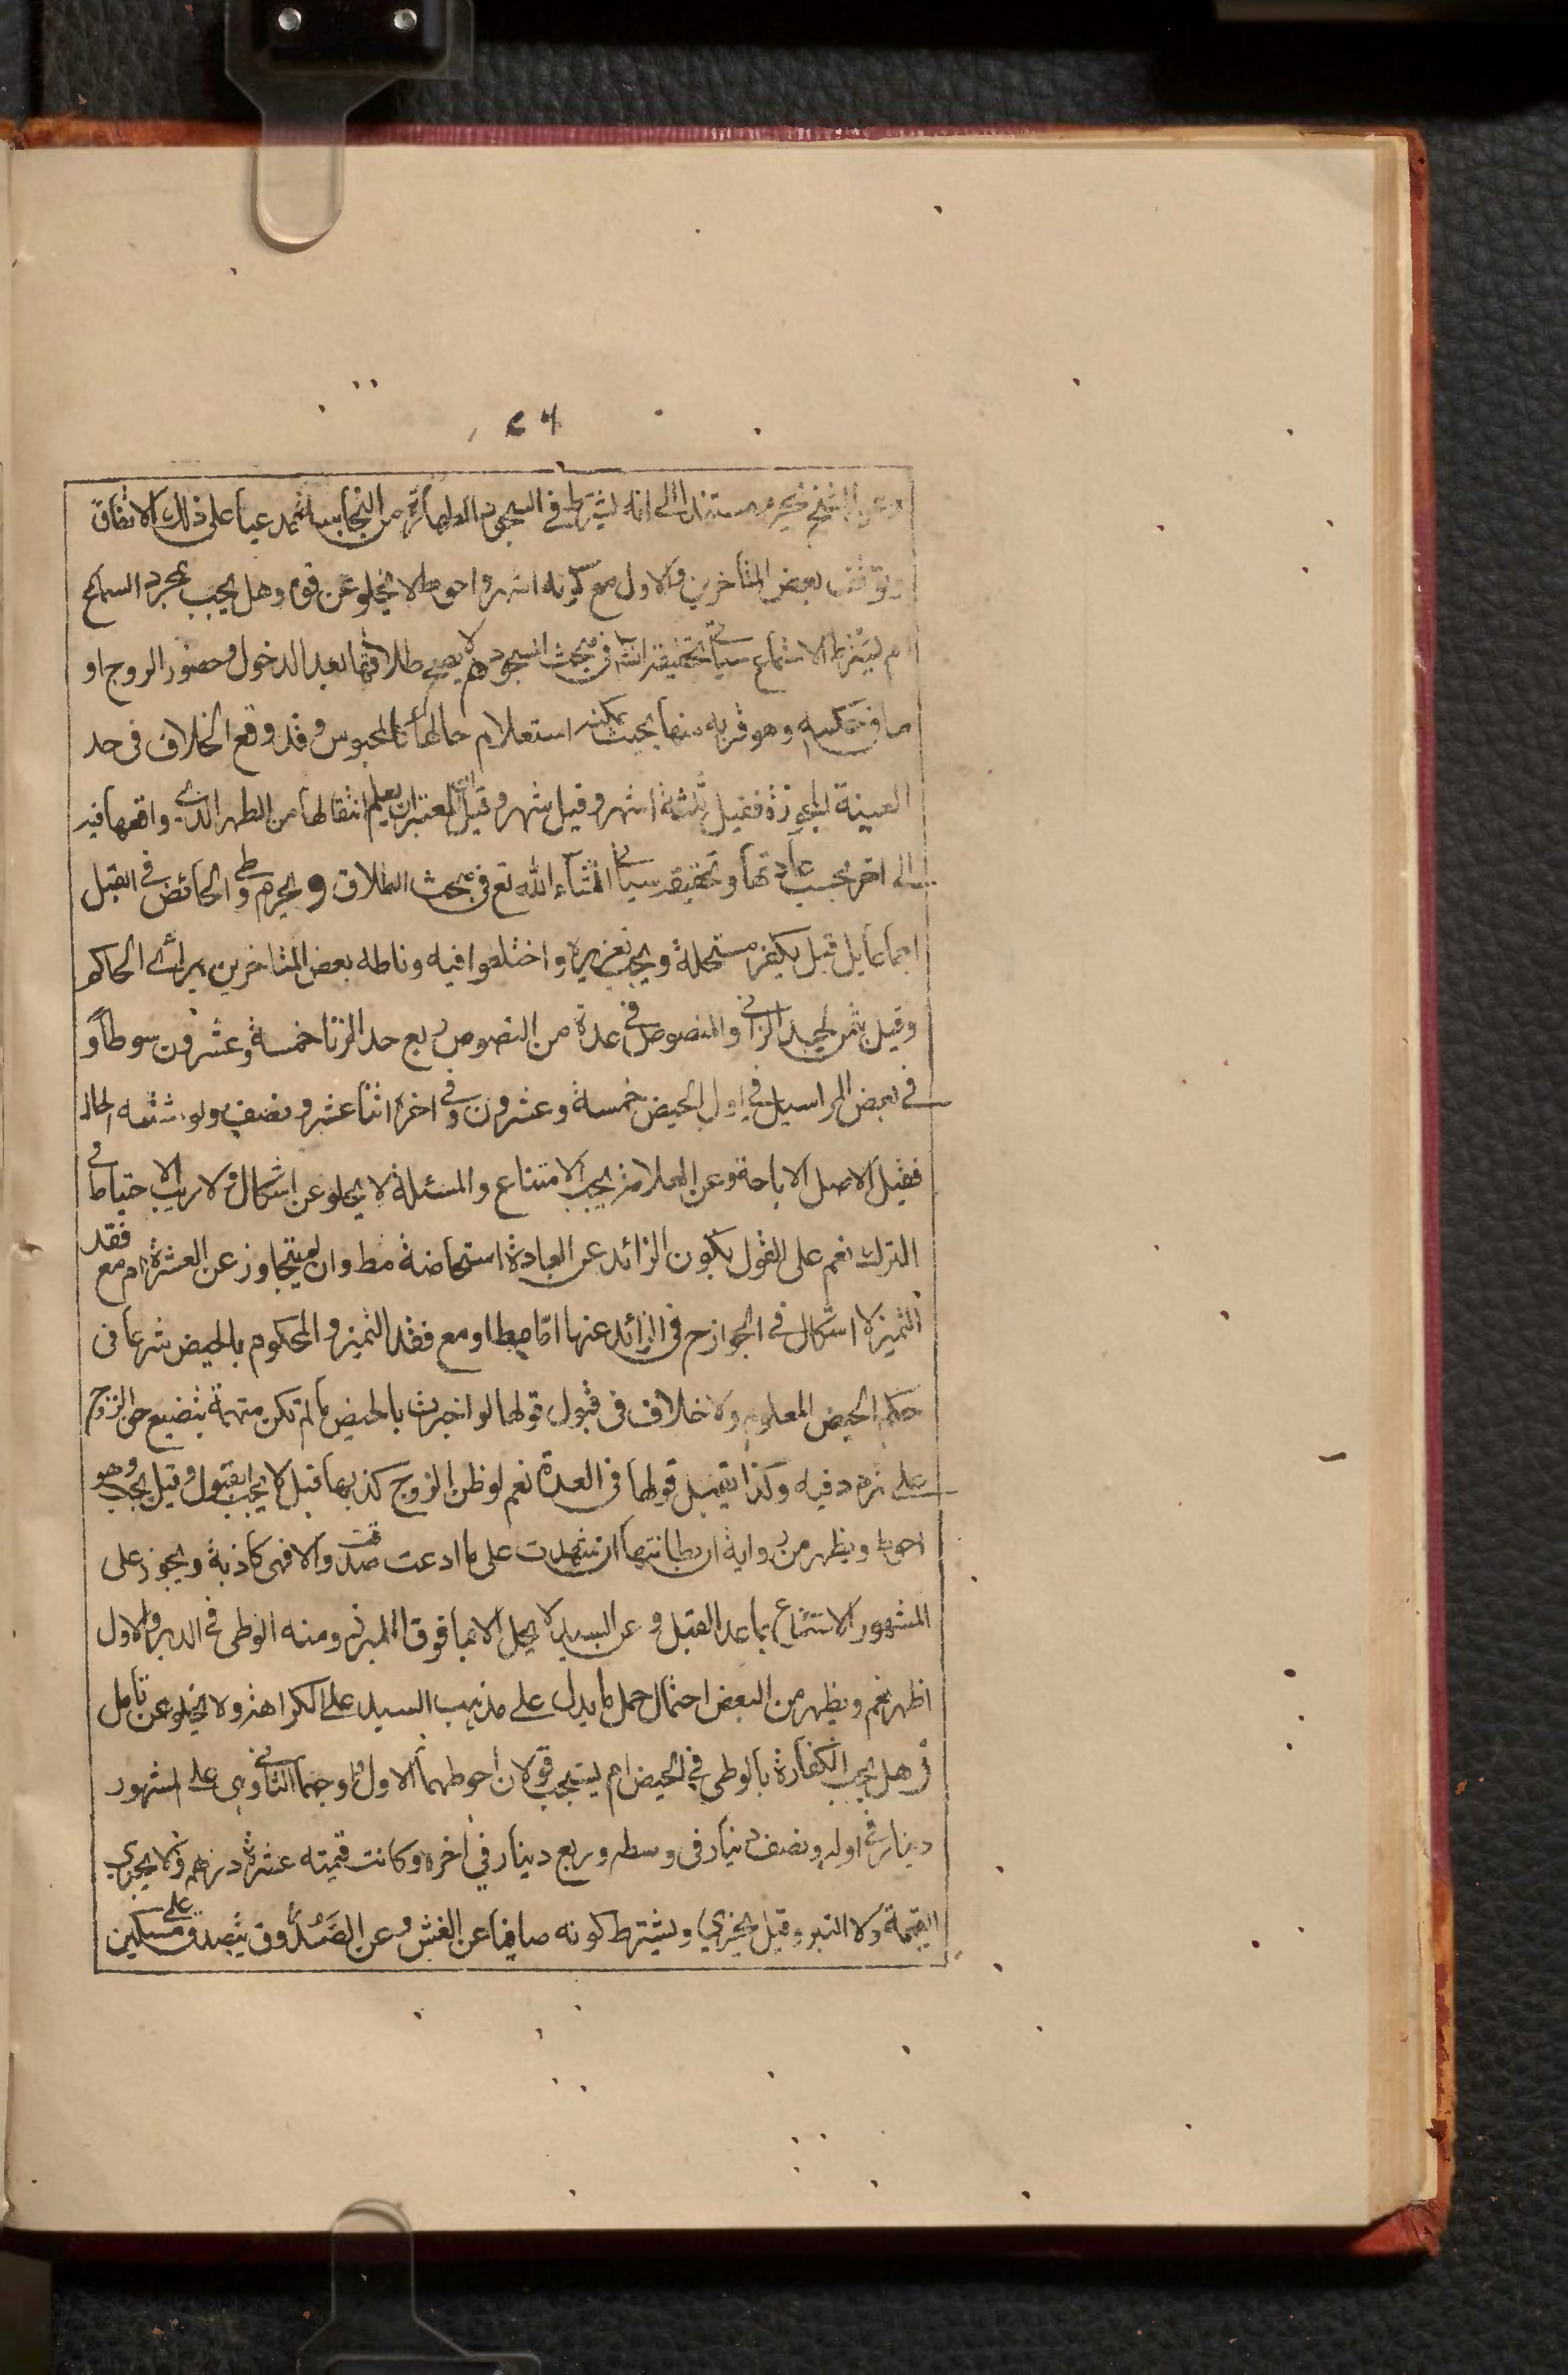 ٢٦
وعن الشيخ تحريمه مستندا الى انه يشترط في السجود الطهارة من النجاسة مدعيا على ذلك الاتفاق
وتوقف بعض المتأخرين والاول مع كونه اشهر واحوط لا يخلو عن قوة وهل يجب بمجرد السماع
ام يشترط الاستماع سيأتي تحقيقه انشاء في مبحث السجود ولا يصح طلاقها بعد الدخول وحضور الزوج او
ما في حكمه وهو قربه منها بحيث يمكنه استعلام حالها كالمحبوس وقد وقع الخلاف في حد
الغيبة المجوزة فقيل ثلثة اشهر وقيل شهر وقيل المعتبر ان يعلم انتقالها من الطهر الذي واقعها فيه
الى اخر بحسب عادتها وتحقيقه سيأتي انشاء الله تع في مبحث الطلاق ويحرم وطي الحائض في القبل
اجماعا بل قيل بكفر مستحله ويجب تعزيره واختلفوا فيه وناطه بعض المتاخرين برأي الحاكم
وقيل بثمن حد الزاني والمنصوص في عدة من النصوص ربع حد الزنا خمسة وعشرون سوطا و
في بعض المراسيل في اول الحيض خمسة وعشرون وفي اخره اثنا عشر ونصف ولو اشتبه الحال
فقيل الاصل الاباحة وعن العلامة يجب الامتناع والمسئلة لا يخلو عن اشكال ولا ريب الاحتياط في
الترك نعم على القول بكون الزائد عن العادة استحاضة مط وان لم يتجاوز عن العشرة ام مع فقد
التميز لا اشكال في الجواز ح في الزائد عنها اما مط او مع فقد التميز والمحكوم بالحيض شرعا في
حكم الحيض المعلوم ولا خلاف في قبول قولها لو اخبرت بالحيض ما لم تكن متهمة بتضييع حق الزوج
على تردد فيه وكذا يقبل قولها في العدة نعم لو ظن الزوج كذبها قيل لا يجب القبول وقيل يجب وهو
احوط ويظهر من رواية ان بطانتها ان شهدت على ما ادعت صدقت والا فهي كاذبة ويجوز على
المشهور الاستمتاع بما عدا القبل وعن السيد لا يحل الا بما فوق الميزر ومنه الوطي في الدبر والاول
اظهر نعم ويظهر من البعض احتمال حمل ما يدل على مذهب السيد على الكراهة ولا يخلو عن تأمل
وهل يجب الكفارة بالوطي في الحيض ام يستحب قولان احوطهما الاول واوجههما الثاني وهي على المشهور
دينار في اوله ونصف دينار في وسطه وربع دينار في اخره وكانت قيمته عشرة دراهم ولا يجزي
القيمة ولا التبر وقيل يجزي ويشترط كونه صافيا عن الغش وعن الصَّدُوق يتصدق على مسكين